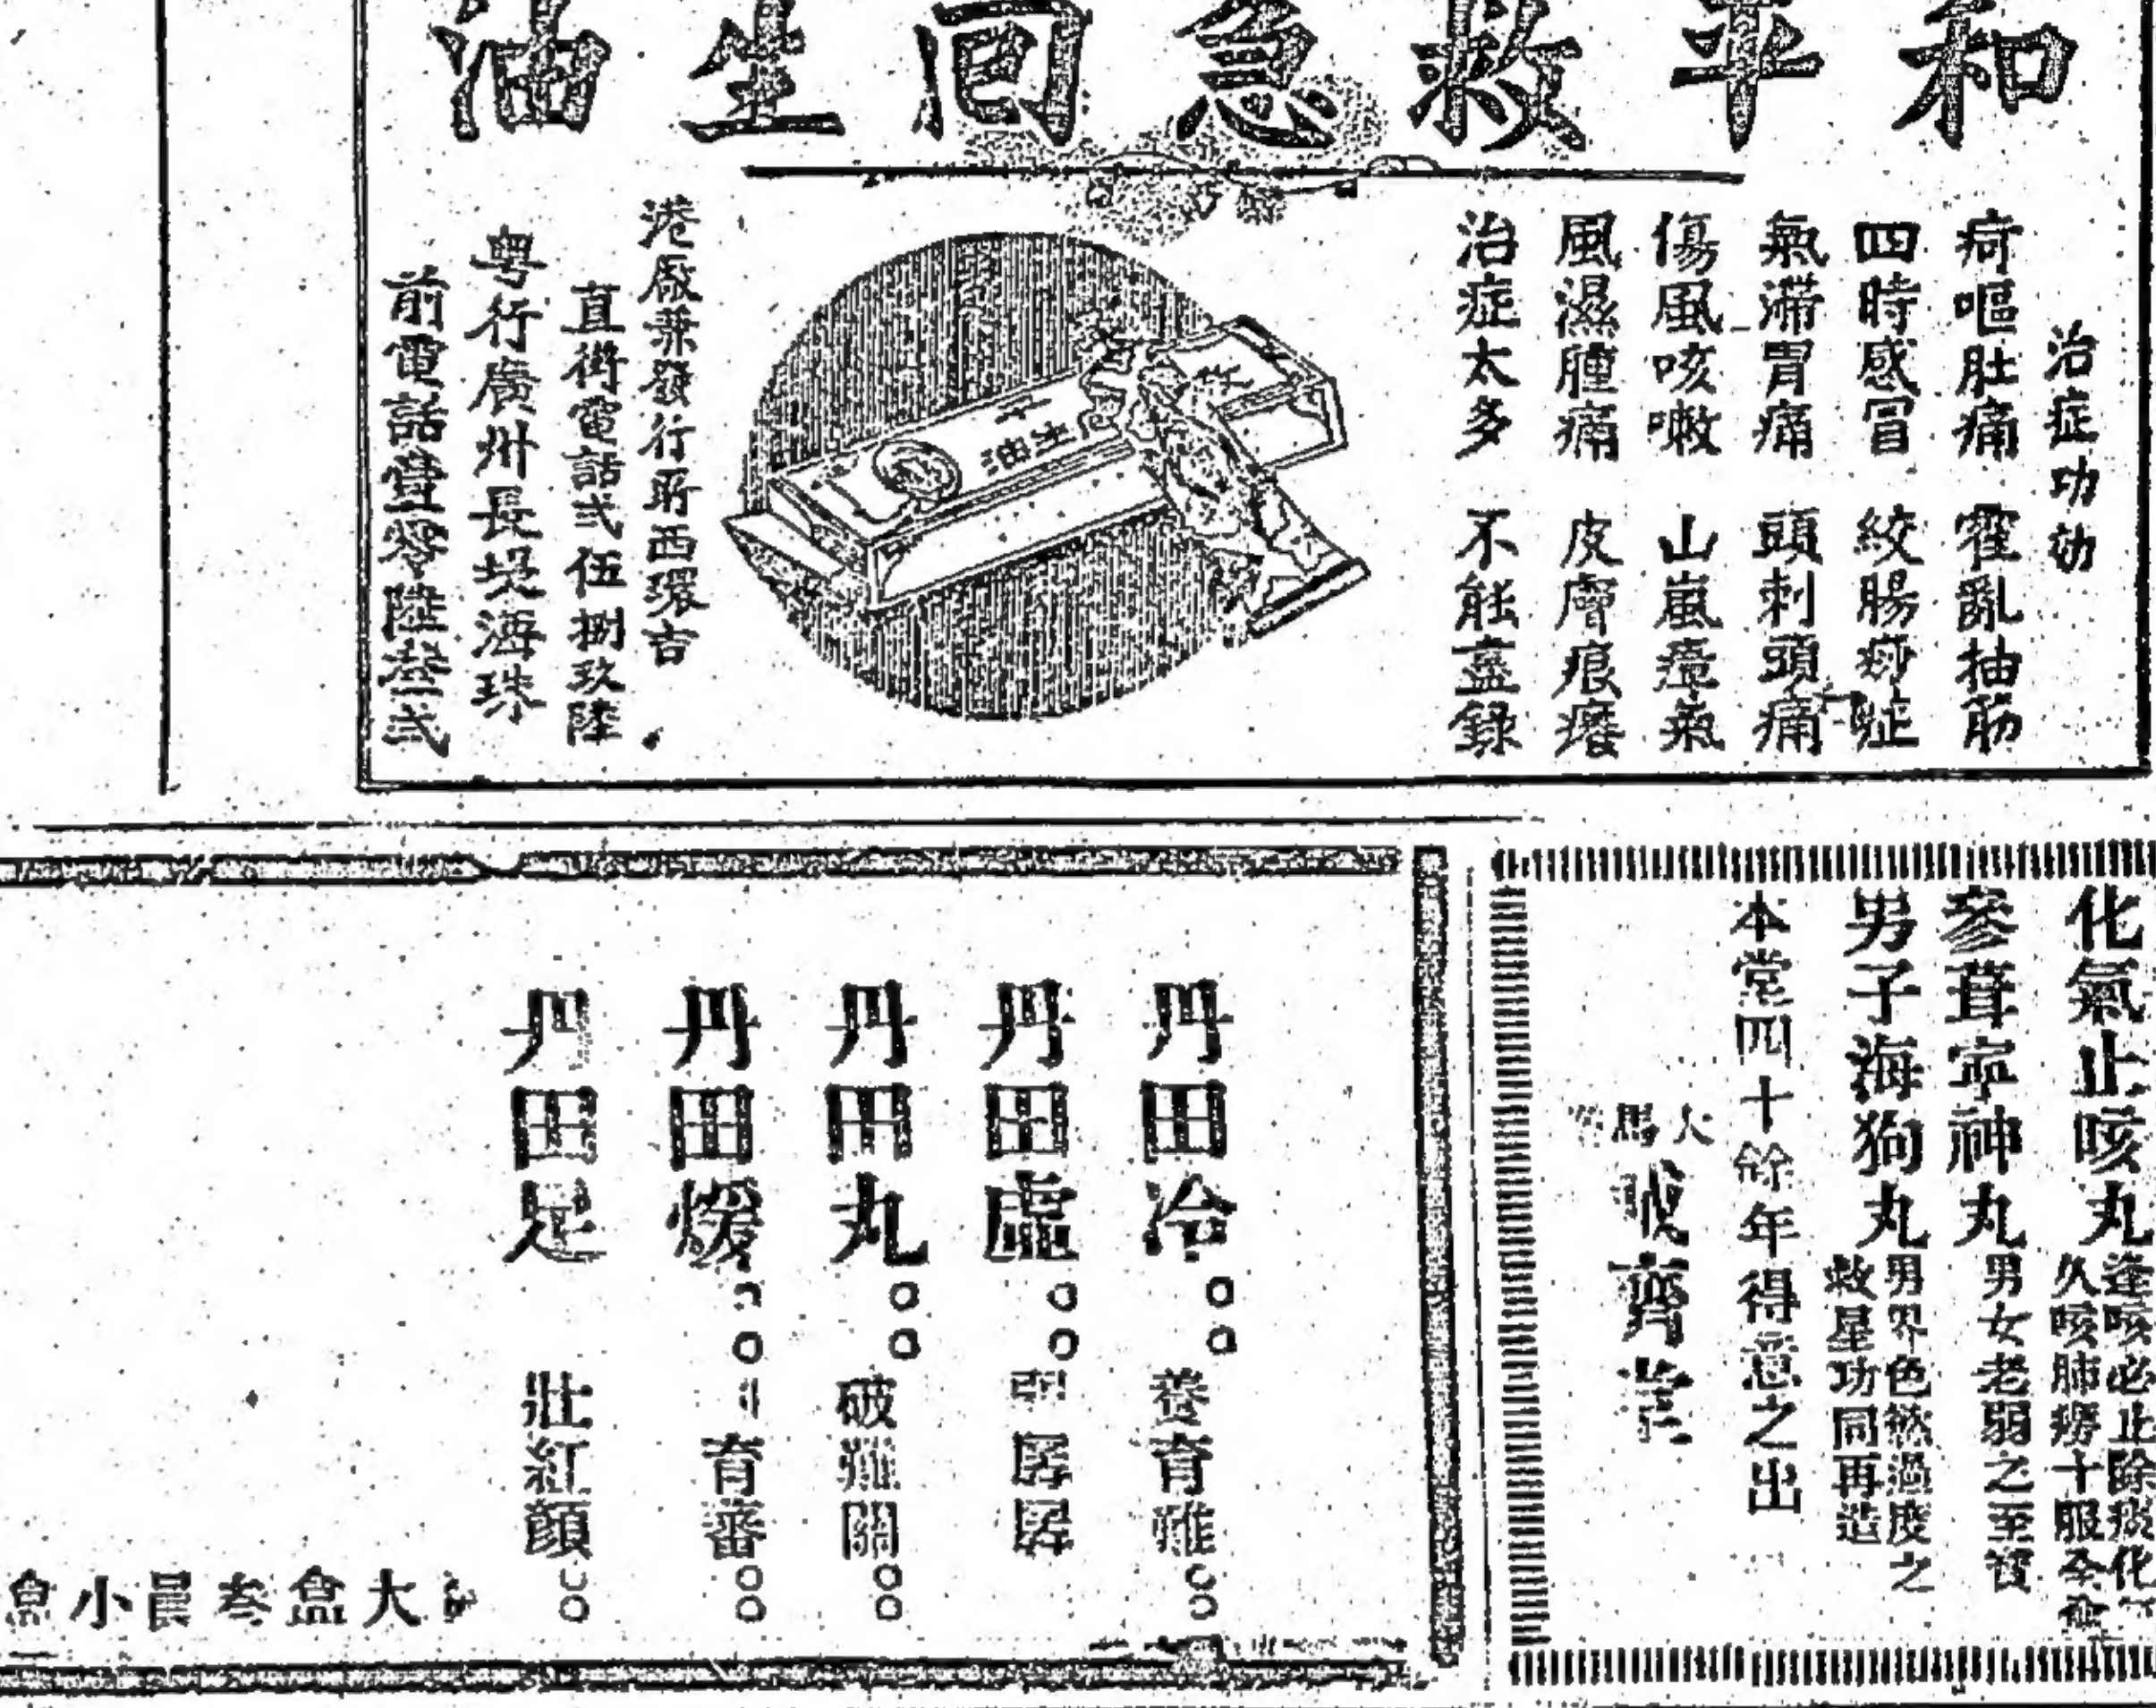 和平救急回生油
治症功効
疴嘔肚痛 霍亂抽筋
四時感冒 絞腸痧症
氣滯胃痛 頭刺頭痛
傷風咳嗽 山嵐瘴氣
風濕腫痛 皮膚痕癢
治症太多 不能盡錄
港廠兼發行所西環吉
直街電話弍伍捌玖陸
粤行廣州長堤海珠
前電話壹零陸叁弍
生油
化氣止咳丸
逢咳必止除痰化
久咳肺癆十服
參茸寧神丸
男女老弱之至寶
男子海狗丸
男界色慾過度之
救星功同再造
本堂四十餘年得意之出
大馬
齊堂
丹田冷 養育難
丹田虛
丹田丸 破難關
丹田煖 育
丹田足 壯紅顏
大盒叁 小